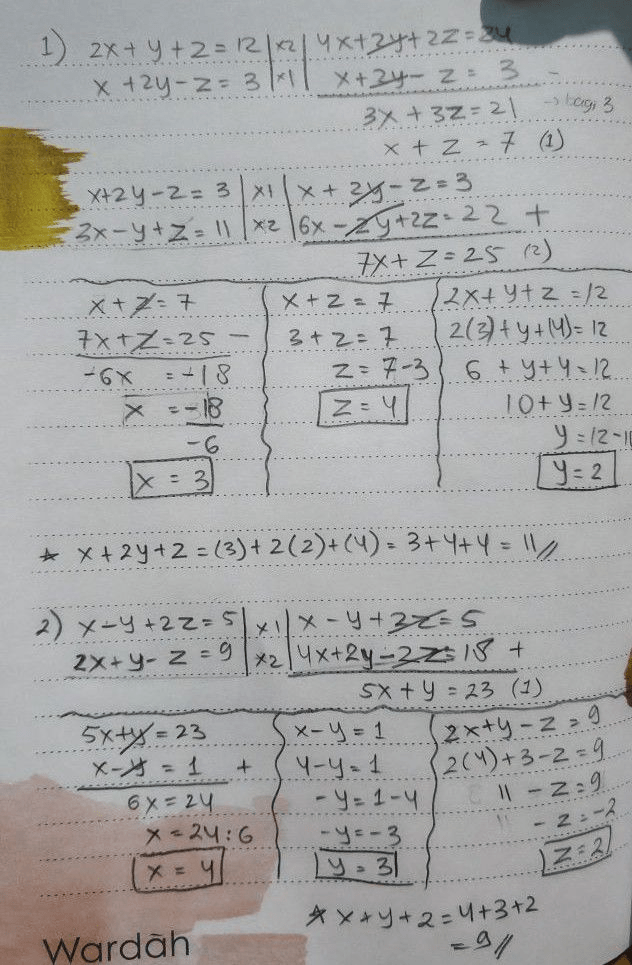 1) 2x + y + z = 12 | x2 | 4x + 2y + 2z = 24
x + 2y - z = 3 | x1 | x + 2y - z = 3 -
3x + 3z = 21 → bagi 3
x + z = 7 (1)
x + 2y - z = 3 | x1 | x + 2y - z = 3
3x - y + z = 11 | x2 | 6x - 2y + 2z = 22 +
7x + z = 25 (2)
x + z = 7
7x + z = 25 -
-6x = -18
x = -18
-6
x = 3
x + z = 7
3 + z = 7
z = 7 - 3
z = 4
2x + y + z = 12
2(3) + y + (4) = 12
6 + y + 4 = 12
10 + y = 12
y = 12 - 10
y = 2
* x + 2y + z = (3) + 2(2) + (4) = 3 + 4 + 4 = 11 //
2) x - y + 2z = 5 | x1 | x - y + 2z = 5
2x + y - z = 9 | x2 | 4x + 2y - 2z = 18 +
5x + y = 23 (1)
5x + y = 23
x - y = 1 +
6x = 24
x = 24 : 6
x = 4
x - y = 1
4 - y = 1
-y = 1 - 4
-y = -3
y = 3
2x + y - z = 9
2(4) + 3 - z = 9
11 - z = 9
-z = -2
z = 2
* x + y + z = 4 + 3 + 2
= 9 //
Wardāh